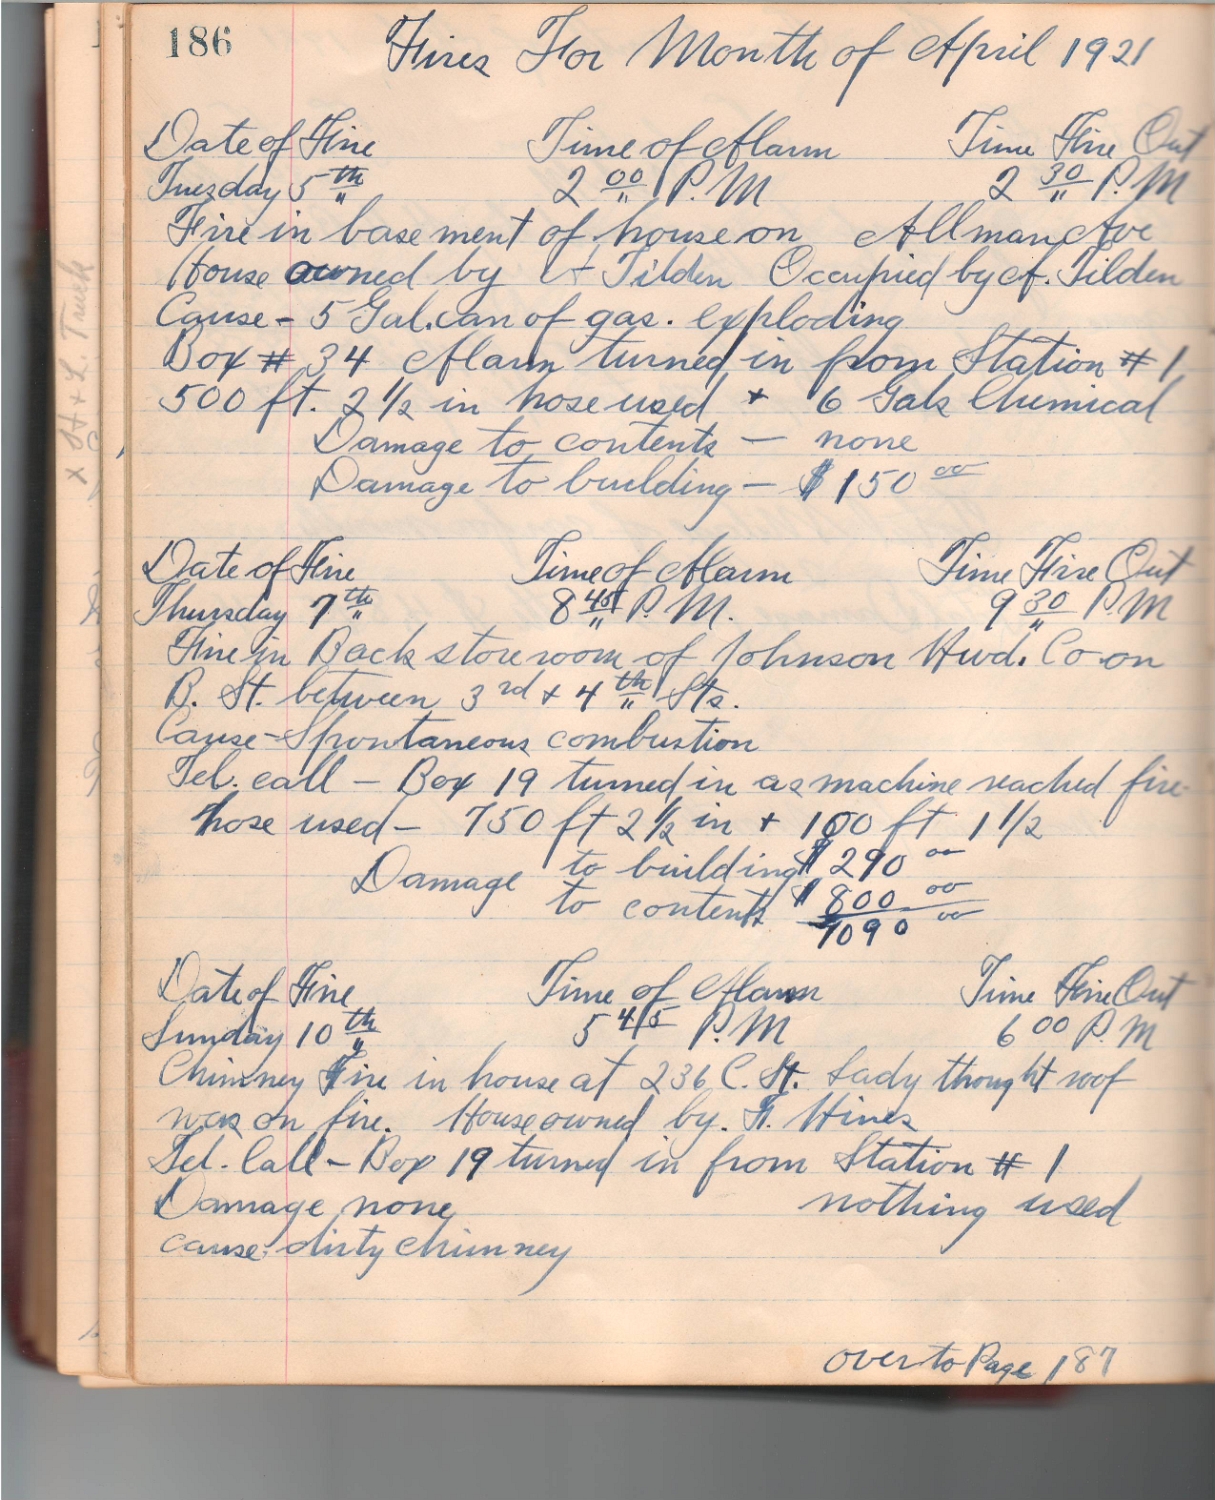 186
Fires For Month of April 1921
Date of Fire Time of Alarm Time Fire Out
Tuesday 5th 2 00 P.M 2 30 P.M
Fire in basement of house on Allman Ave
House owned by A Tilden Occupied by A. Tilden
Cause - 5 Gal. can of gas. exploding
Box # 34 Alarm turned in from Station # 1
500 ft. 2 1/2 in hose used + 6 Gals Chemical
Damage to contents — none
Damage to building — $150 00
Date of Fire Time of Alarm Time Fire Out
Thursday 7th 8 45 P.M. 9 30 P.M
Fire in Back storeroom of Johnson Hwd. Co on
B. St. between 3rd + 4th Sts.
Cause - Spontaneous combustion
Tel. call — Box 19 turned in as machine reached fire
hose used — 750 ft 2 1/2 in + 100 ft 1 1/2
Damage to building $ 290 00
to contents $ 800 00
1090 00
Date of Fire Time of Alarm Time Fire Out
Sunday 10th 5 45 P.M 6 00 P.M
Chimney Fire in house at 236 C. St. Lady thought roof
was on fire. House owned by. F. Hines
Tel. Call — Box 19 turned in from Station # 1
Damage none nothing used
cause: dirty chimney
over to Page 187
x H + L. Truck